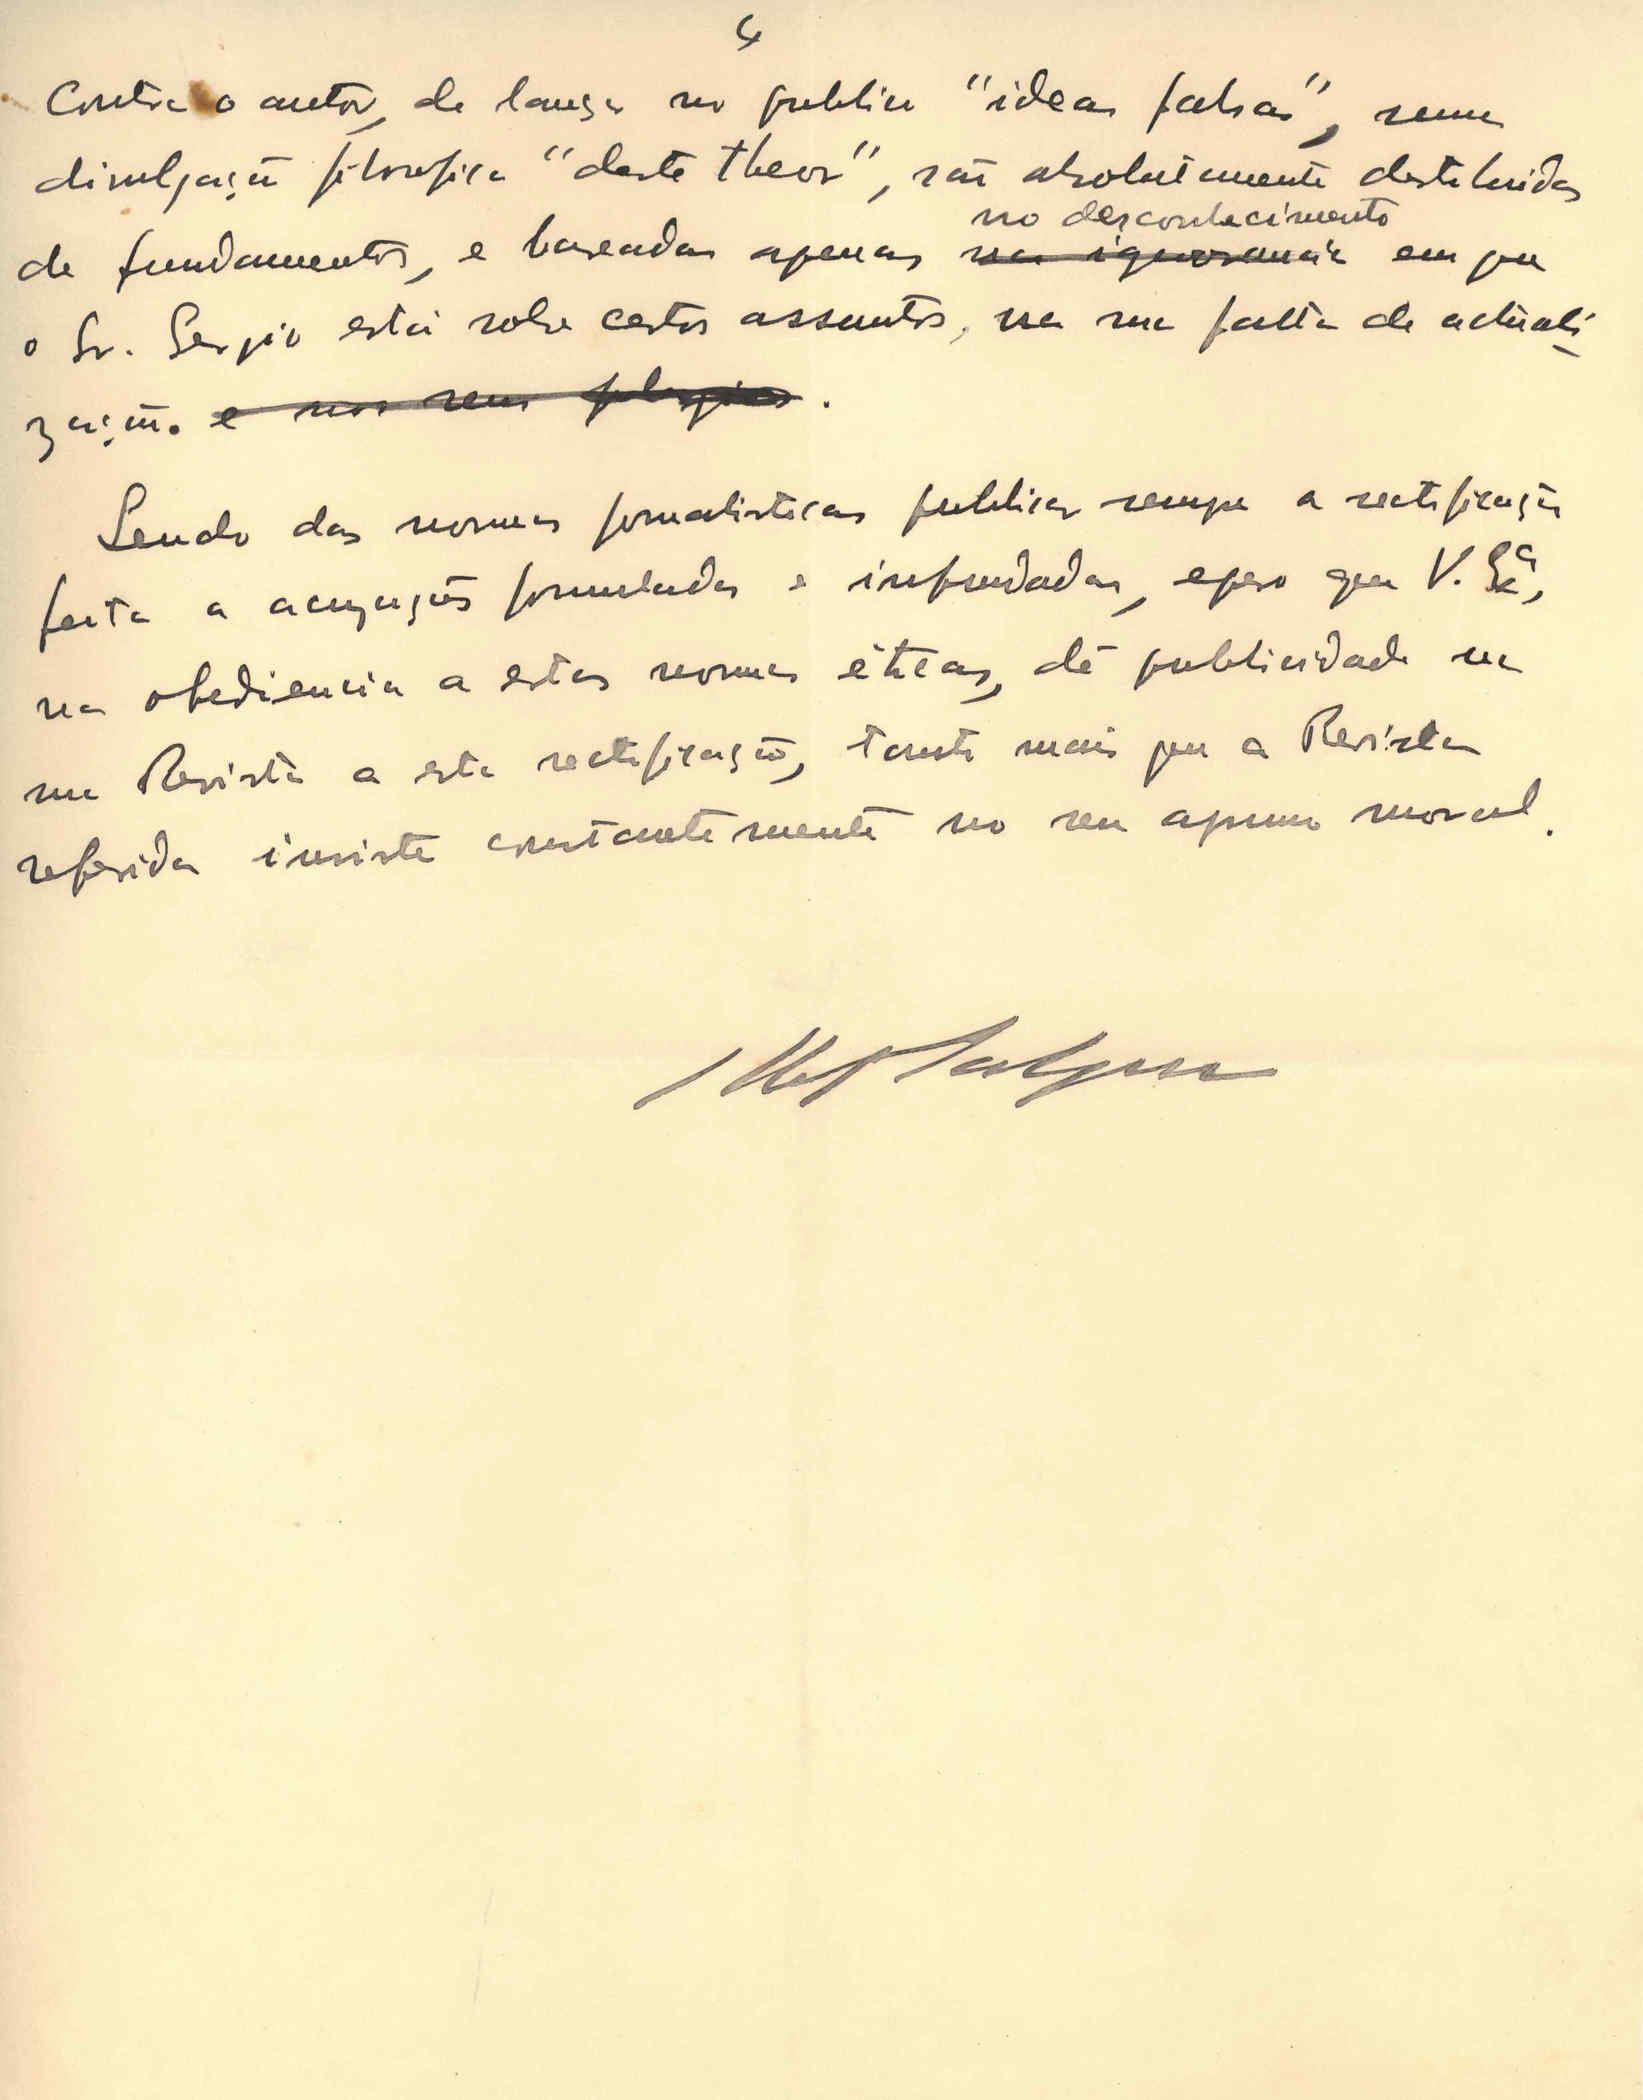 4
Contra o autor, de lançar no publico "ideas falsas", numa
divulgação filosofica "deste theor", são absolutamente destituidas
no desconhecimento
de fundamentos, e baseadas apenas na ignorancia em que
o Sr. Sergio está sobre certos assuntos, na sua falta de actuali-
zação. e nos seus plagios.
Sendo das normas jornalisticas publicar sempre a rectificação
feita a acusações formuladas e infundadas, espero que V. Sa,
na obediencia a estas normas éticas, dê publicidade na
sua Revista a esta rectificação, tanto mais que a Revista
referida insiste constantemente no seu aprumo moral.